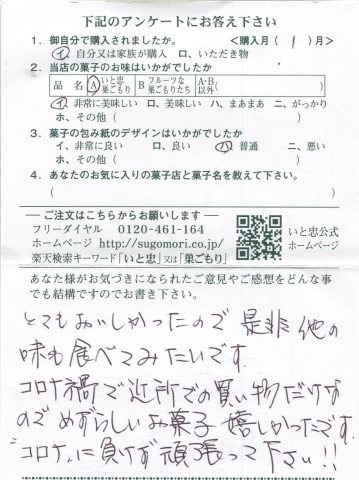 下記のアンケートにお答え下さい
1．御自分で購入されましたか。　＜購入月（ 1 ）月＞
イ、自分又は家族が購入　ロ、いただき物
2．当店の菓子のお味はいかがでしたか
品　名 A いと忠巣ごもり B フルーツな巣ごもりたち A・B以外（
イ、非常に美味しい　ロ、美味しい　ハ、まあまあ　ニ、がっかり
ホ、その他（　　　　　　　　）
3．菓子の包み紙のデザインはいかがでしたか
イ、非常に良い　ロ、良い　ハ、普通　ニ、悪い
ホ、その他（　　　　　　　　）
4．あなたのお気に入りの菓子店と菓子名を教えて下さい。
（　　　　　　　　）
― ご注文はこちらからお願いします ―
フリーダイヤル　0120-461-164
ホームページ　http://sugomori.co.jp/
楽天検索キーワード「いと忠」又は「巣ごもり」
いと忠公式
ホームページ
あなた様がお気づきになられたご意見やご感想をどんな事
でも結構ですのでお書き下さい。
とてもおいしかったので 是非 他の
味も食べてみたいです。
コロナ禍で近所での買い物だけな
のでめずらしいお菓子 嬉しかったです。
コロナに負けず頑張って下さい!!